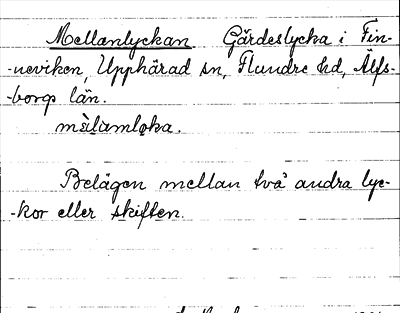 Mellanlyckan Gärdeslycka i Fin-
-neviken, Upphärad sn, Flundre hd, Älfs-
-borgs län.
Belägen mellan två andra lyc-
-kor eller skiften.